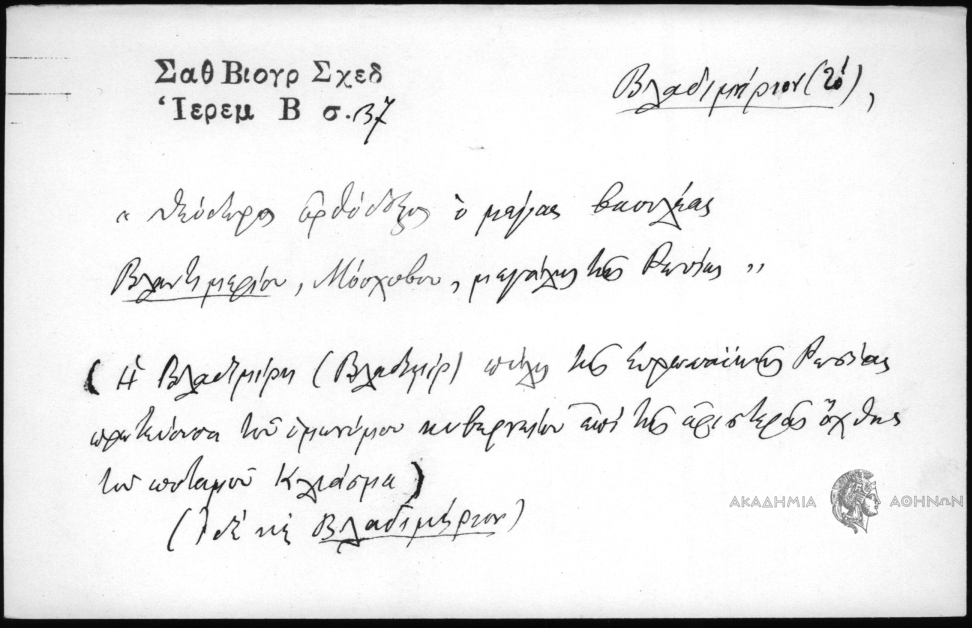 Σαθ Βιογρ Σχεδ
Ἱερεμ Β σ. 137
Βλαδιμήριον (τό),
« ὀρθόδοξος ὁ μέγας βασιλέας
Βλαντιμερίου, Μόσχοβου, μεγάλης τῆς Ρωσίας »
(Ἡ Βλαδιμίρη (Βλαδιμίρ) πόλις τῆς Εὐρωπαϊκῆς Ρωσσίας
πρωτεύουσα τοῦ ὁμωνύμου κυβερνείου ἐπὶ τῆς ἀριστερᾶς ὄχθης
τοῦ ποταμοῦ Κλιάσμα)
(Ἰδὲ κὲ Βλαδιμήριον)
ΑΚΑΔΗΜΙΑ ΑΘΗΝΩΝ